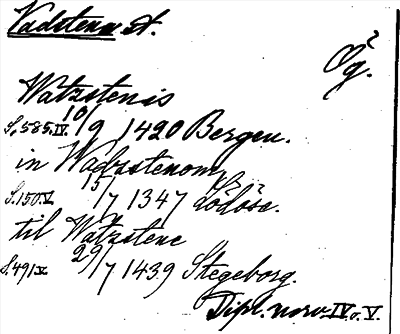 Vadstena st.
Ög.
Watzstenis
S. 585. IV. 10/9 1420 Bergen.
in Wadzstenom
S. 150. V 15/7 1347 Lödöse.
til Watzstene
S. 491. V 29/7 1439 Stegeborg.
Dipl. norv. IV o. V.